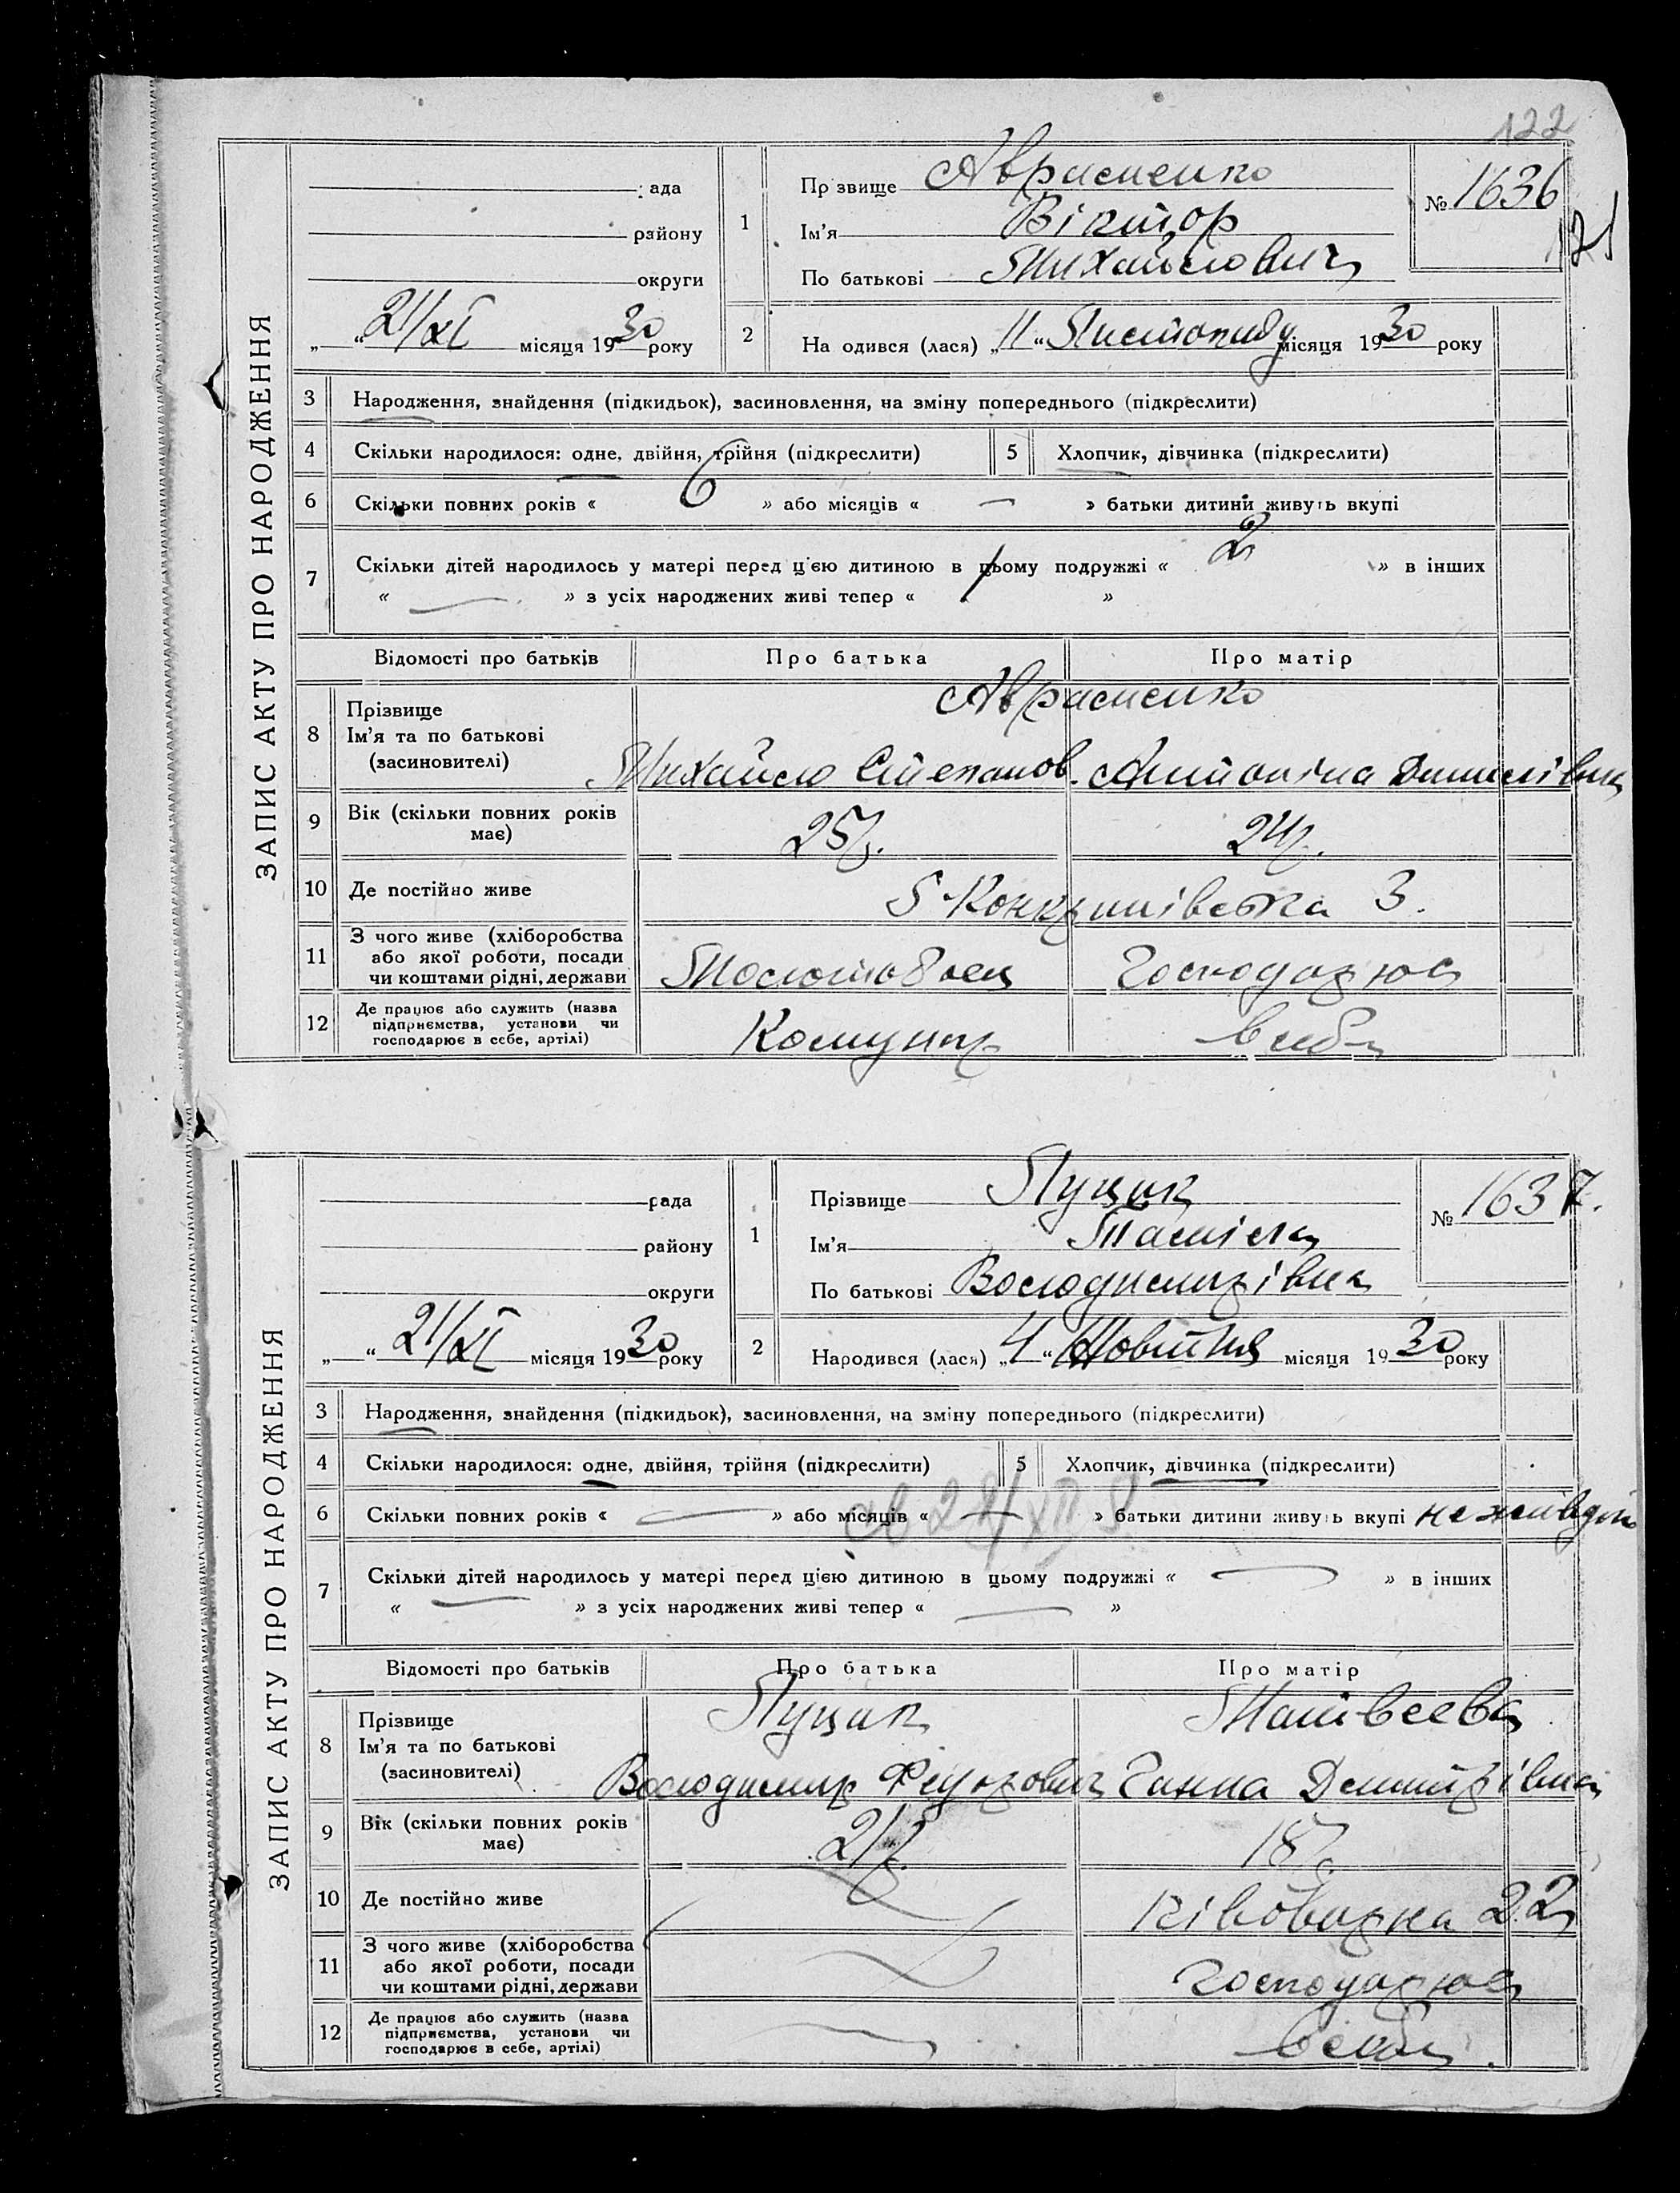 122
ЗАПИС АКТУ ПРО НАРОДЖЕННЯ
ада
району
округи
„ “ 21/XI місяця 1930 року
1
Пр звище Авраменко
Ім'я Віктор
По батькові Михайлович
№ 1636
121
2
На одився (лася) „11“ Листопаду місяця 1930 року
3 Народження, знайдення (підкидьок), засиновлення, на зміну попереднього (підкреслити)
4 Скільки народилося: одне, двійня, трійня (підкреслити) 5 Хлопчик, дівчинка (підкреслити)
6 Скільки повних років « 6 » або місяців « — » батьки дитини живуть вкупі
7 Скільки дітей народилось у матері перед цією дитиною в цьому подружжі « 2 » в інших
« — » з усіх народжених живі тепер « 1 »
Відомості про батьків Про батька Про матір
8 Прізвище
Ім'я та по батькові
(засиновителі)
Авраменко
Михайло Степанов. Антоніна Данилівна
9 Вік (скільки повних років має) 25р. 24р.
10 Де постійно живе 3.
11 З чого живе (хліборобства
або якої роботи, посади
чи коштами рідні, держави
Молотобоец Господарює
12 Де працює або служить (назва
підприємства, установи чи
господарює в себе, артілі)
Комунар в себе
ЗАПИС АКТУ ПРО НАРОДЖЕННЯ
рада
району
округи
„ “ 21/XI місяця 1930 року
1
Прізвище Луцик
Ім'я
По батькові Володимирівна
№ 1637.
2
Народився (лася) „4“ Жовтня місяця 1930 року
3 Народження, знайдення (підкидьок), засиновлення, на зміну попереднього (підкреслити)
4 Скільки народилося: одне, двійня, трійня (підкреслити) 5 Хлопчик, дівчинка (підкреслити)
6 Скільки повних років « — » або місяців « — » батьки дитини живуть вкупі не
7 Скільки дітей народилось у матері перед цією дитиною в цьому подружжі « — » в інших
« — » з усіх народжених живі тепер « — »
Відомості про батьків Про батька Про матір
8 Прізвище
Ім'я та по батькові
(засиновителі)
Луцик Матвеева
Володимир Федорович Ганна Дмитрівна
9 Вік (скільки повних років має) 21р. 18р.
10 Де постійно живе 22
11 З чого живе (хліборобства
або якої роботи, посади
чи коштами рідні, держави
Господарює
12 Де працює або служить (назва
підприємства, установи чи
господарює в себе, артілі)
в себе